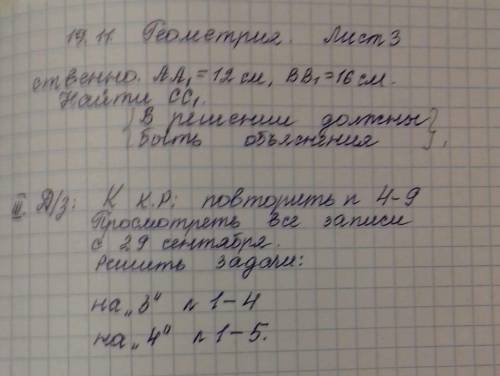 19.11. Геометрия. Лист 3
ственно. АА₁ = 12 см, ВВ₁ = 16 см.
Найти СС₁.
{В решении должны
быть объяснения}.
III. Д/з: К К.Р: повторить п 4-9
Просмотреть все записи
с 29 сентября.
Решить задачи:
на „3" № 1-4
на „4" № 1-5.